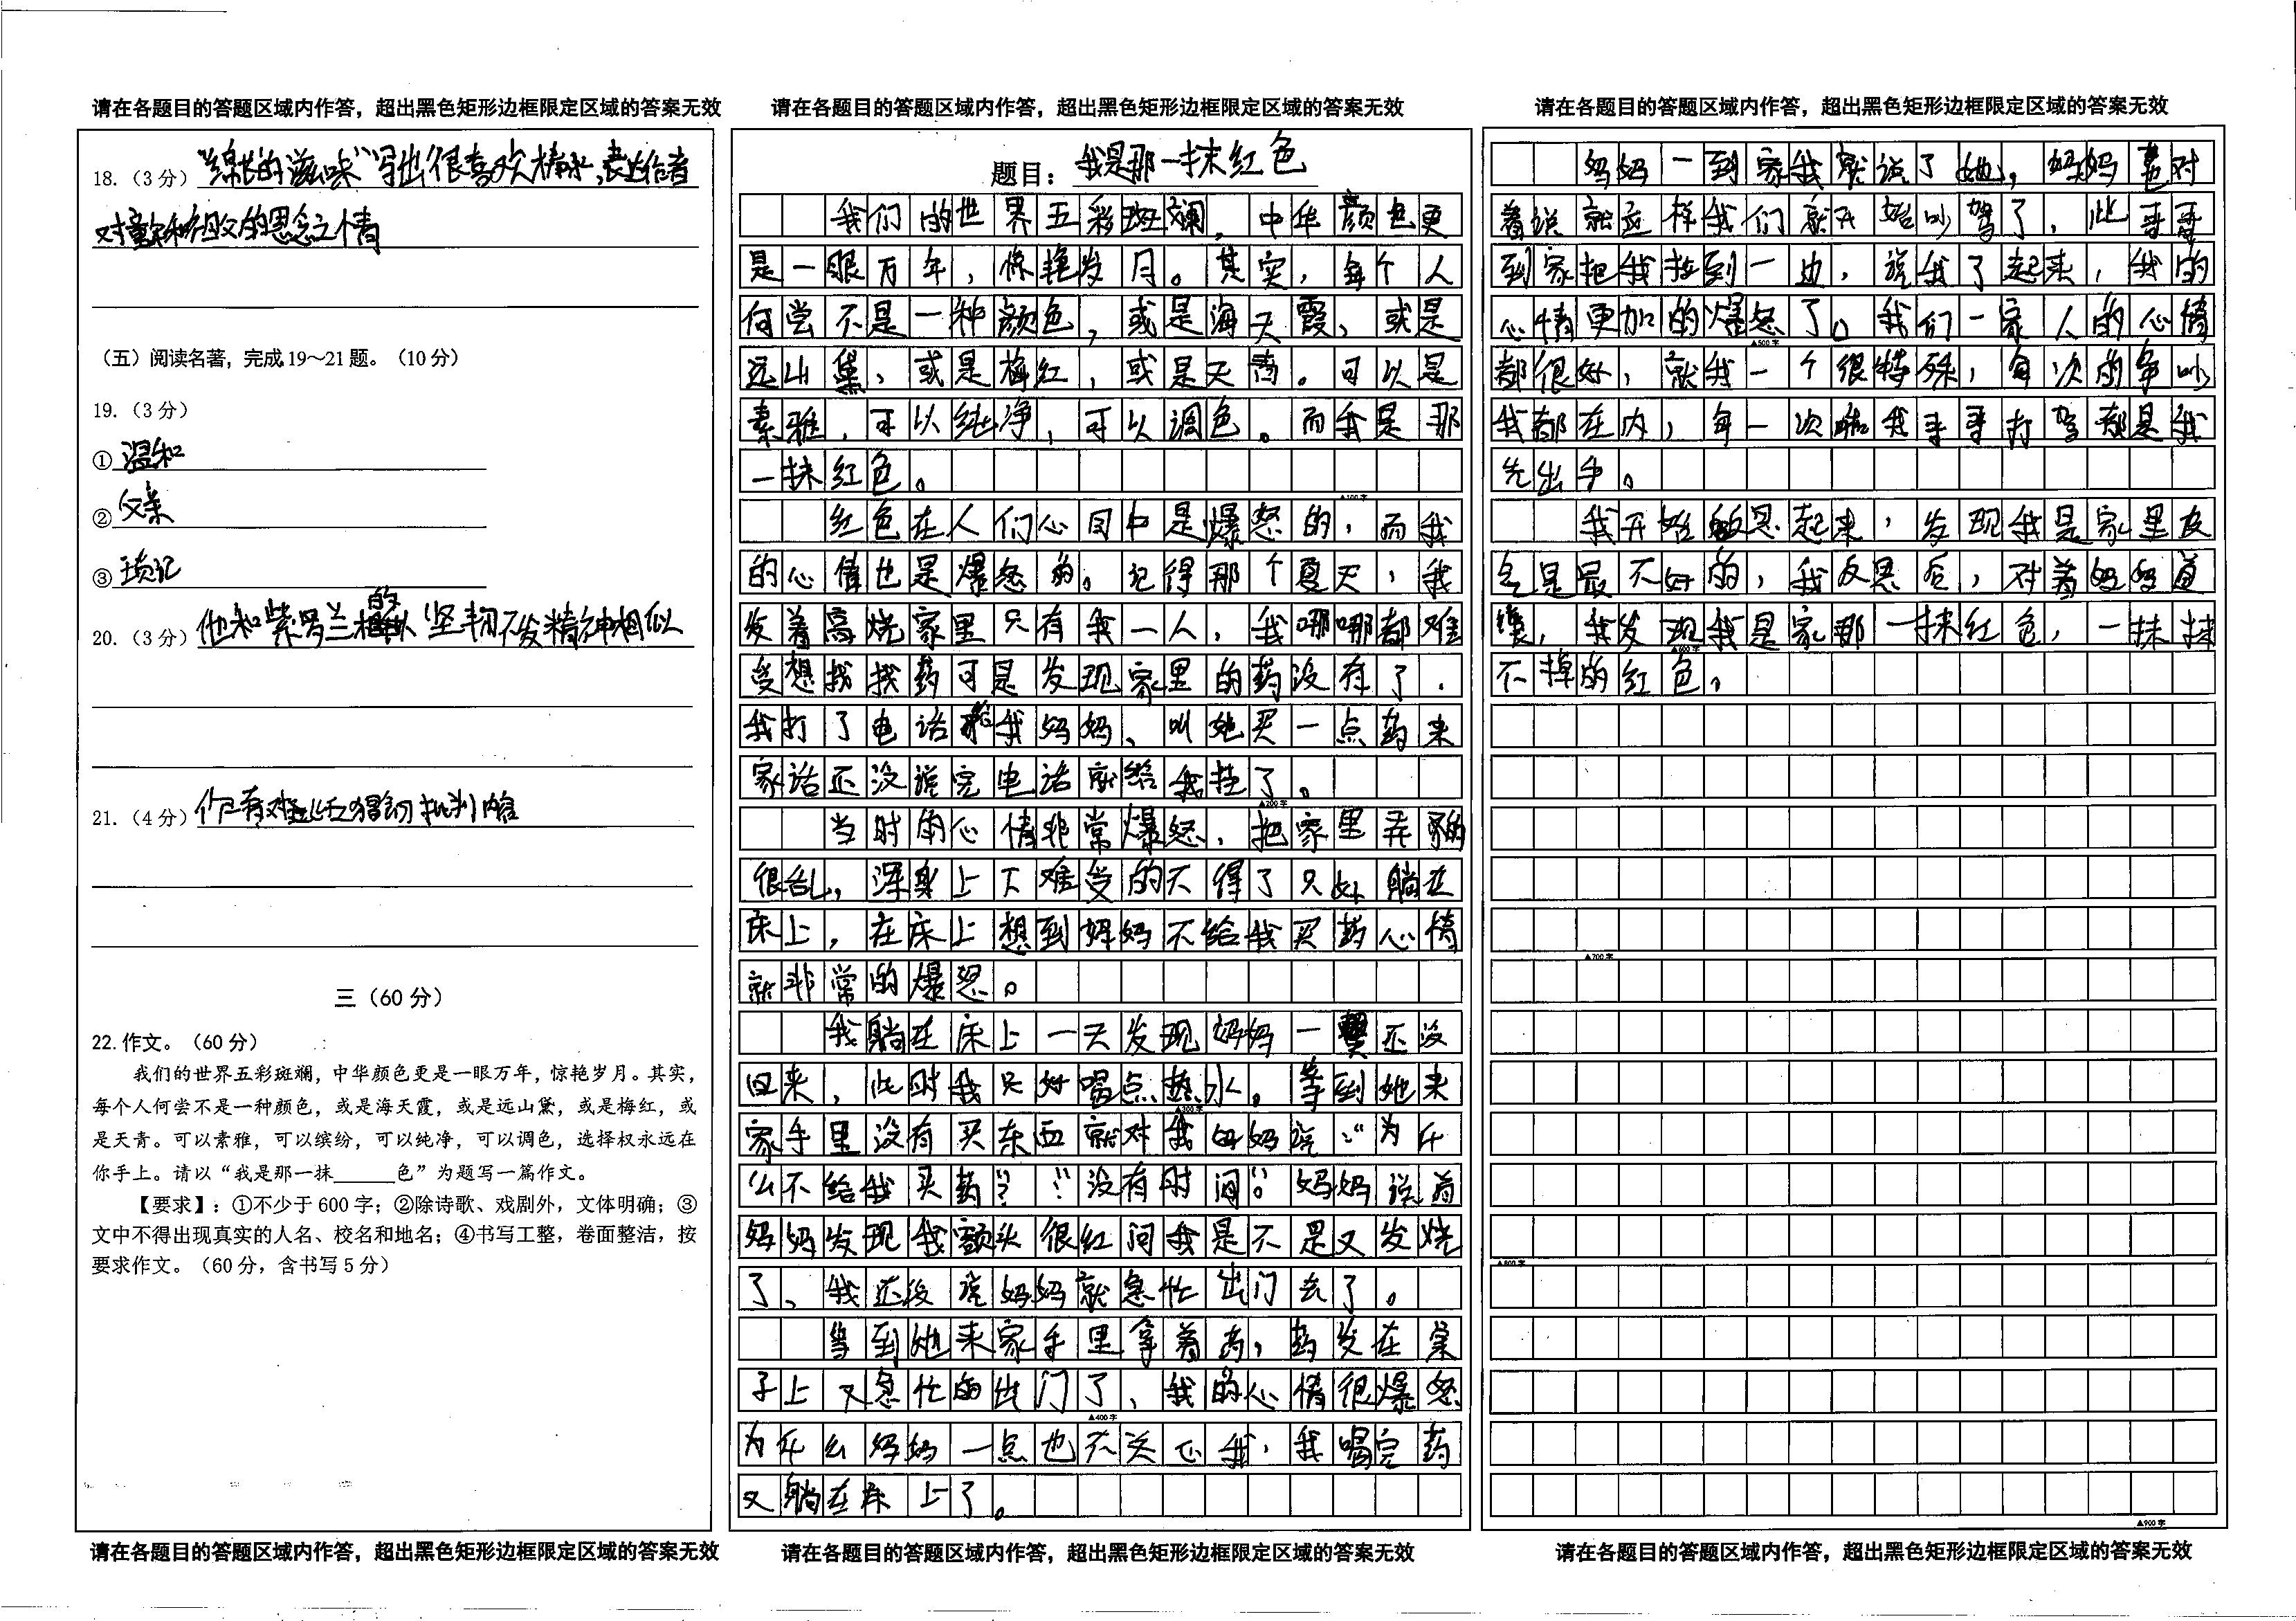 请在各题目的答题区域内作答，超出黑色矩形边框限定区域的答案无效
18.（3分）“绵长的滋味”写出很喜欢椿水，表达作者
对童年和祖父的思念之情
（五）阅读名著，完成19～21题。（10分）
19.（3分）
①温和
②父亲
③琐记
20.（3分）他和紫罗兰的坚韧不发精神相似
21.（4分）
三（60分）
22.作文。（60分）
我们的世界五彩斑斓，中华颜色更是一眼万年，惊艳岁月。其实，
每个人何尝不是一种颜色，或是海天霞，或是远山黛，或是梅红，或
是天青。可以素雅，可以缤纷，可以纯净，可以调色，选择权永远在
你手上。请以“我是那一抹______色”为题写一篇作文。
【要求】：①不少于600字；②除诗歌、戏剧外，文体明确；③
文中不得出现真实的人名、校名和地名；④书写工整，卷面整洁，按
要求作文。（60分，含书写5分）
请在各题目的答题区域内作答，超出黑色矩形边框限定区域的答案无效
请在各题目的答题区域内作答，超出黑色矩形边框限定区域的答案无效
题目：我是那一抹红色
我们的世界五彩斑斓，中华颜色更
是一眼万年，惊艳岁月。其实，每个人
何尝不是一种颜色，或是海天霞，或是
远山黛，或是梅红，或是天青。可以是
素雅，可以纯净，可以调色。而我是那
一抹红色。
▲100字
红色在人们心目中是爆怒的，而我
的心情也是爆怒的。记得那个夏天，我
发着高烧家里只有我一人，我哪哪都难
受想找找药可是发现家里的药没有了．
我打了电话给我妈妈、叫她买一点药来
家话还没说完电话就给我挂了。
▲200字
当时的心情非常爆怒，把家里弄的
很乱，浑身上下难受的不得了只好躺在
床上，在床上想到妈妈不给我买药心情
就非常的爆怒。
我躺在床上一天发现妈妈一还没
回来，此时我只好喝点热水。等到她来
▲300字
家手里没有买东西就对我妈妈说：“为什
么不给我买药？”“没有时间”。妈妈说着
妈妈发现我额头很红问我是不是又发烧
了、我还没说妈妈就急忙出门去了。
等到她来家手里拿着药，药发在桌
子上又急忙的出门了、我的心情很爆怒
▲400字
为什么妈妈一点也不关心我，我喝完药
又躺在床上了。
请在各题目的答题区域内作答，超出黑色矩形边框限定区域的答案无效
请在各题目的答题区域内作答，超出黑色矩形边框限定区域的答案无效
妈妈一到家我就说了她，妈妈对
着说就这样我们就开始吵驾了．此哥哥
到家把我拉到一边，说我了起来，我的
心情更加的爆怒了。我们一家人的心情
▲500字
都很好，就我一个很特殊，每次的争吵
我都在内，每一次跟我哥哥打驾都是我
先出手。
我开始反思起来，发现我是家里皮
气是最不好的，我反思后，对着妈妈道
，我发现我是家那一抹红色，一抹抹
▲600字
不掉的红色。
▲700字
▲800字
▲900字
请在各题目的答题区域内作答，超出黑色矩形边框限定区域的答案无效